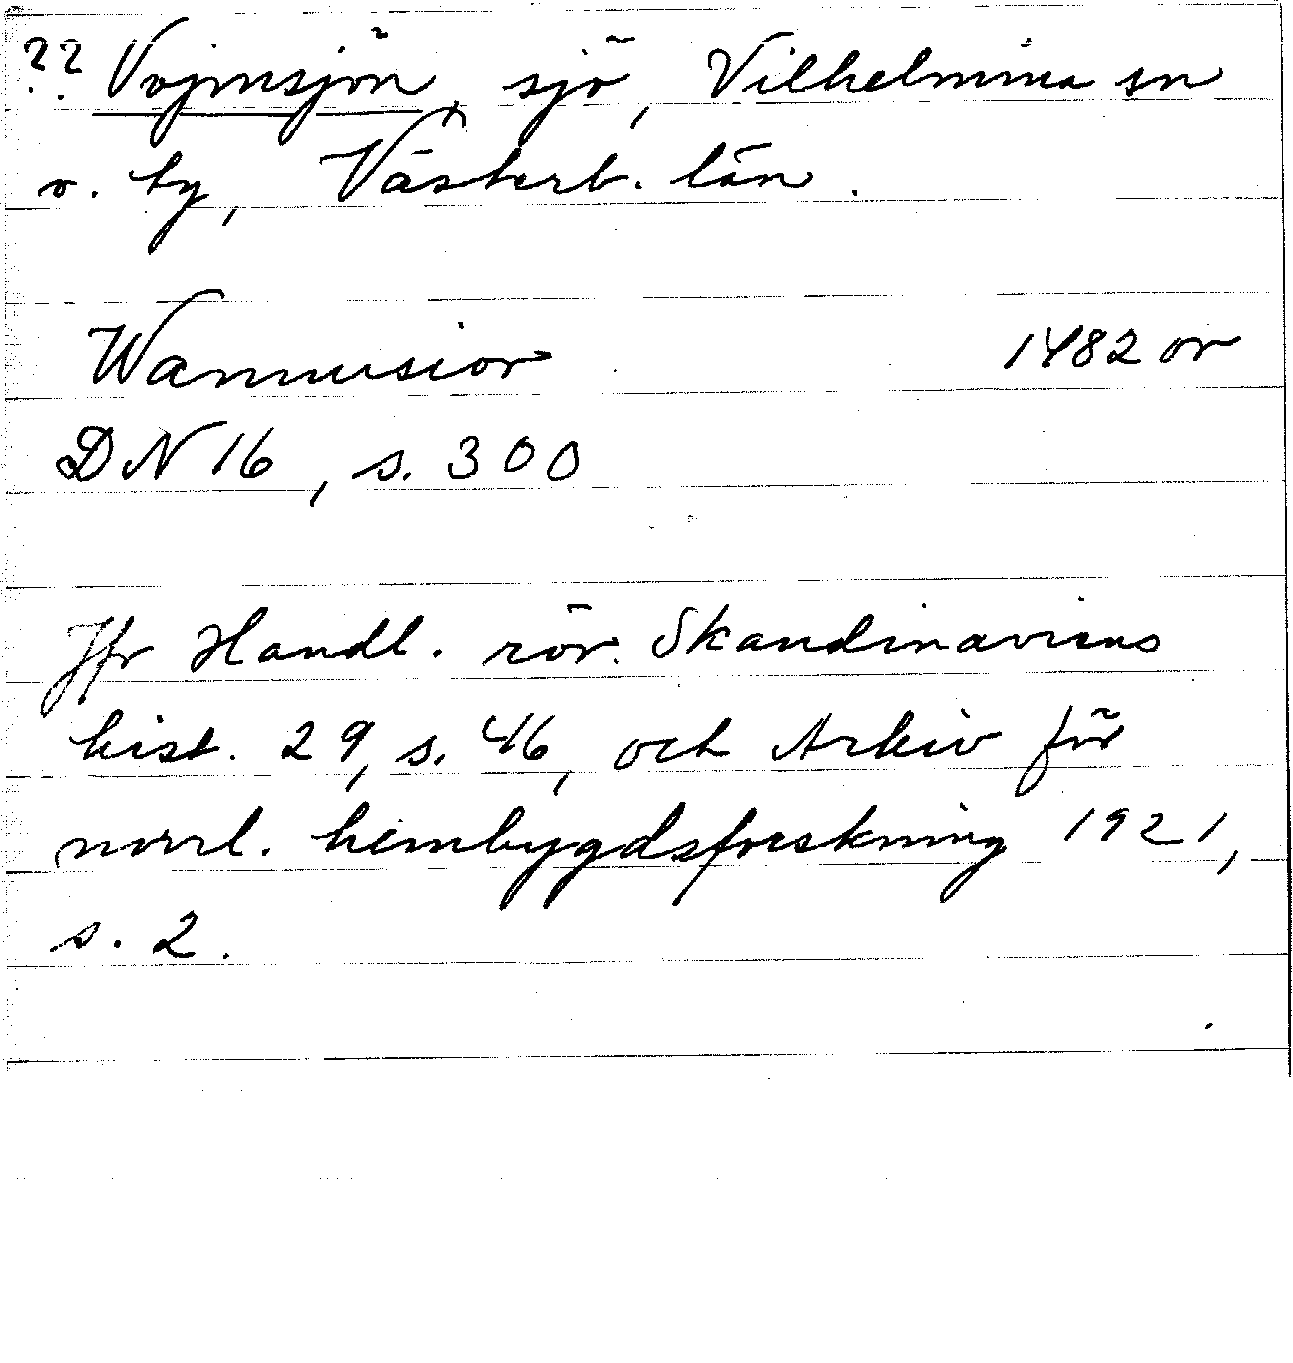 ?? Vojmsjön, sjö, Vilhelmina sn
o. by, Västerb. län.
Wamusior 1482 or
DN 16, s. 300
Jfr Handl. rör. Skandinaviens
hist. 29, s. 46, och Arkiv för
norrl. hembygdsforskning 1921,
s. 2.